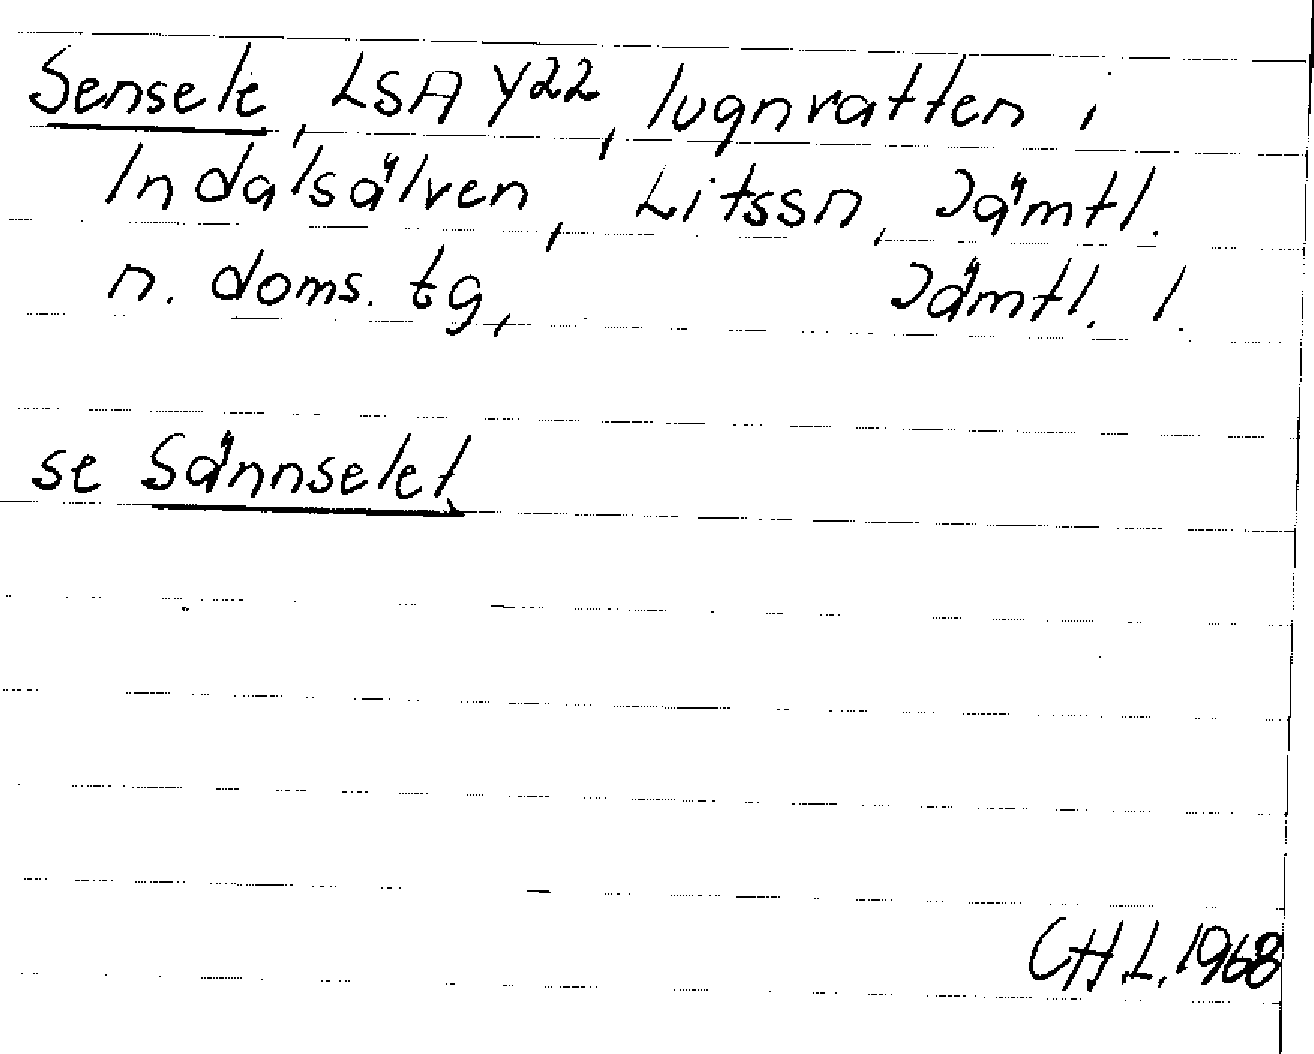 Sensele, LSA Y22, lugnvatten i
Indalsälven, Litssn, Jämtl.
n. doms. tg, Jämtl. l.
se Sännselet.
CHL. 1968